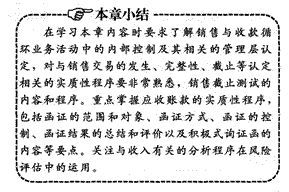 本章小结
在学习本章内容时要求了解销售与收款循
环业务活动中的内部控制及其相关的管理层认
定，对与销售交易的发生、完整性、截止等认定
相关的实质性程序要非常熟悉，销售截止测试的
内容和程序。重点掌握应收账款的实质性程序，
包括函证的范围和对象、函证方式、函证的控
制、函证结果的总结和评价以及积极式询证函的
内容等要点。关注与收入有关的分析程序在风险
评估中的运用。